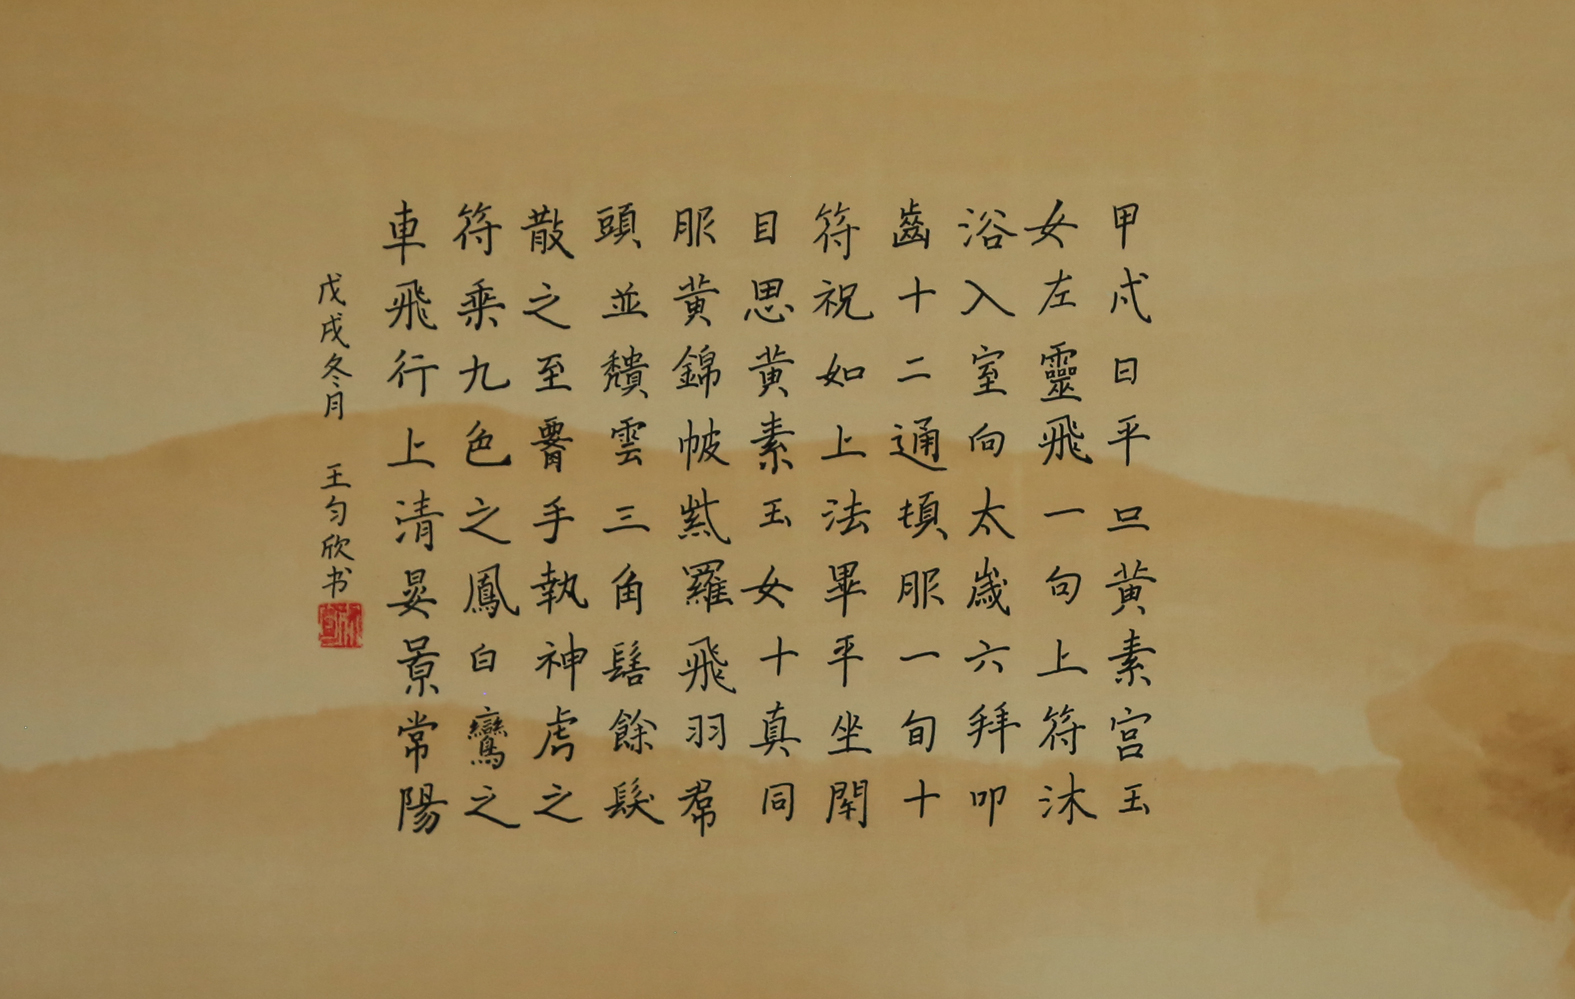 甲戌日平旦黄素宫玉
女左靈飛一旬上符沐
浴入室向太歲六拜叩
齒十二通頓服一旬十
符祝如上法畢平坐閉
目思黄素玉女十真同
服黄錦帔紫羅飛羽帬
頭並穨雲三角髻餘髮
散之至霄手執神虎之
符乘九色之鳳白鸞之
車飛行上清晏景常陽
戊戌冬月 王匀欣书